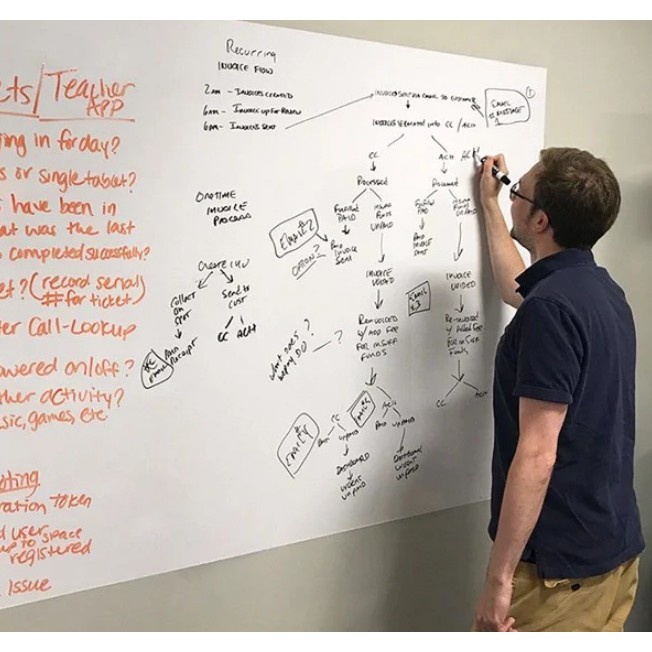 Recurring
INVOICE FLOW
2AM - INVOICES CREATED
6AM - INVOICES UP FOR REVIEW
6AM - INVOICES SENT
INVOICES SENT VIA EMAIL TO CUSTOMER
INVOICES SEPARATED INTO CC / ACH
EMAIL
MESSAGE
1
CC
Processed
PAID
UNPAID
Paid
Invoice
Sent
INVOICE
VOIDED
Re-invoiced
w/ ADD FEE
FOR INSUFF
FUNDS
CC
ACH
Paid
unpaid
DASHBOARD
URGENT
UNPAID
Paid
unpaid
DASHBOARD
URGENT
UNPAID
ACH
PAID
UNPAID
Paid
INVOICE
SENT
INVOICE
VOIDED
Re-invoiced
w/ Added Fee
For insuff
Funds
CC
ACH
EMAIL 2
OPTION 2
EMAIL
3
What does
?
ONE TIME
INVOICE
PROCESS
Create INV
Collect
on
spot
Paid
Receipt
Send to
cust
CC
ACH
ets/Teacher
APP
ing in for day?
s or single tablet?
s have been in
at was the last
completed successfully?
et? (record serial)
# for ticket
er Call-Lookup
owered on/off?
ther activity?
sic, games, etc
oting
ration Token
d user space
up to
registered
Issue